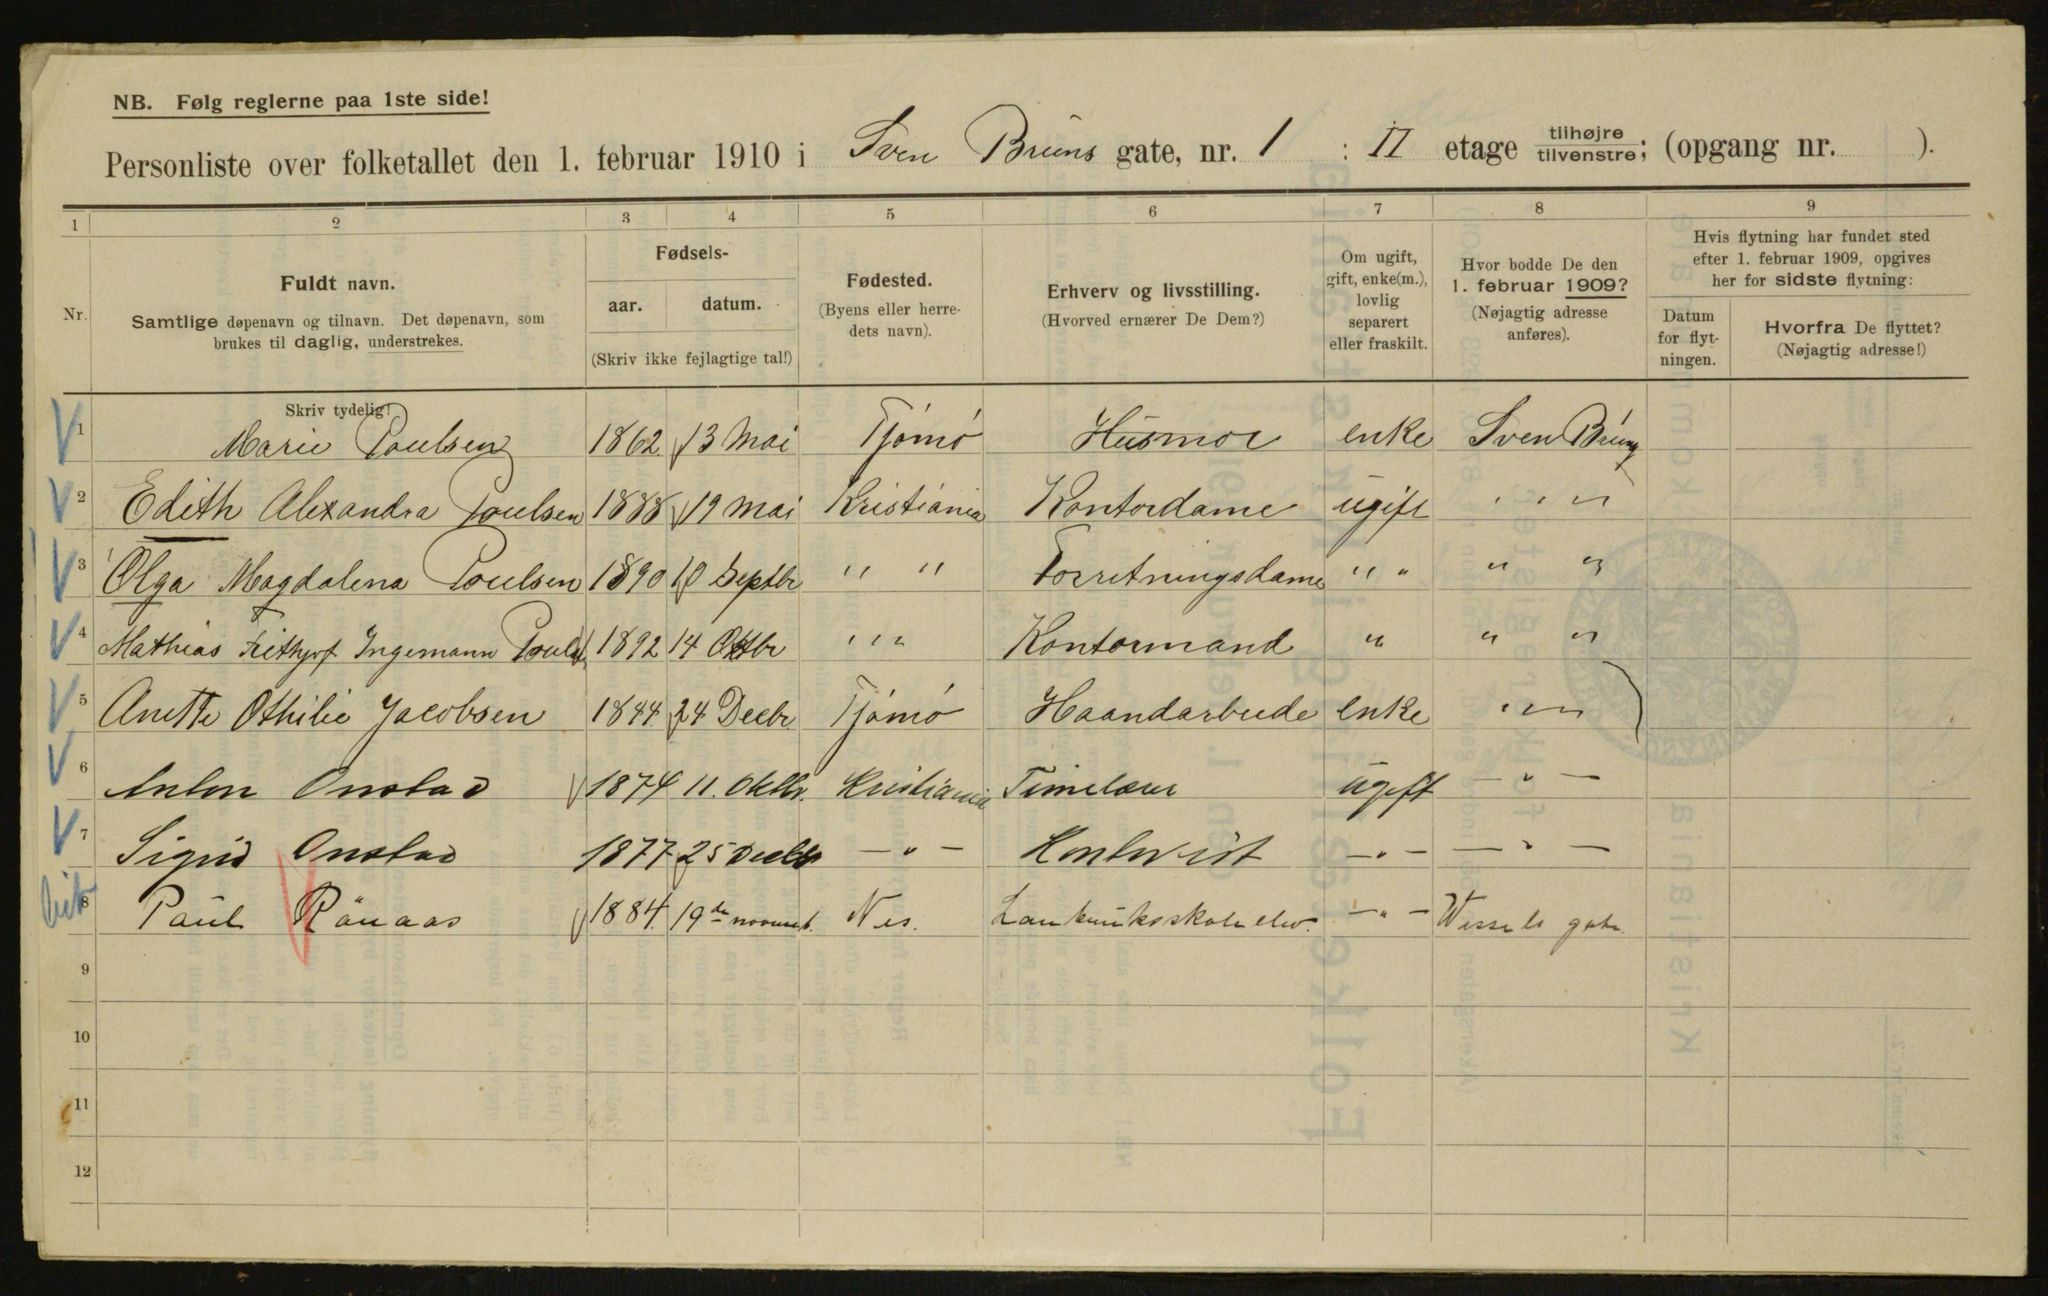 NB. Følg reglerne paa 1ste side!
Personliste over folketallet den 1. februar 1910 i Sven Bruns gate, nr. 1 : II etage tilhøjre/tilvenstre; (opgang nr. ).
1 2 3 4 5 6 7 8 9
Nr.
Fuldt navn.
Samtlige døpenavn og tilnavn. Det døpenavn, som
brukes til daglig, understrekes.
Fødsels-
aar. datum.
(Skriv ikke fejlagtige tal!)
Fødested.
(Byens eller herre-
dets navn).
Erhverv og livsstilling.
(Hvorved ernærer De Dem?)
Om ugift,
gift, enke(m.),
lovlig
separert
eller fraskilt.
Hvor bodde De den
1. februar 1909?
(Nøjagtig adresse
anføres).
Hvis flytning har fundet sted
efter 1. februar 1909, opgives
her for sidste flytning:
Datum
for flyt-
ningen.
Hvorfra De flyttet?
(Nøjagtig adresse!)
Skriv tydelig!
1 Marie Poulsen 1862 13 Mai Tjømø Husmor enke Sven Bruns
2 Edith Alexandra Poulsen 1888 19 Mai Kristiania Kontordame ugift " " "
3 Olga Magdalena Poulsen 1890 10 Septbr " " Forretningsdame " " " "
4 Mathias Frithjof Ingemann 1892 14 Oktbr " " Kontormand " " "
5 Anette Othilie Jacobsen 1844 24 Decbr. Tjømø Haandarbeide enke " " "
6 Anton Onstad 1874 11. Oktbr. Kristiania Timelærer ugift — " —
7 Sigrid Onstad 1877 25 Decbr — " — — " — — " —
8 Paul Rånaas 1884. 19de novemb. Nes. — " — Wessels gate.
9
10
11
12